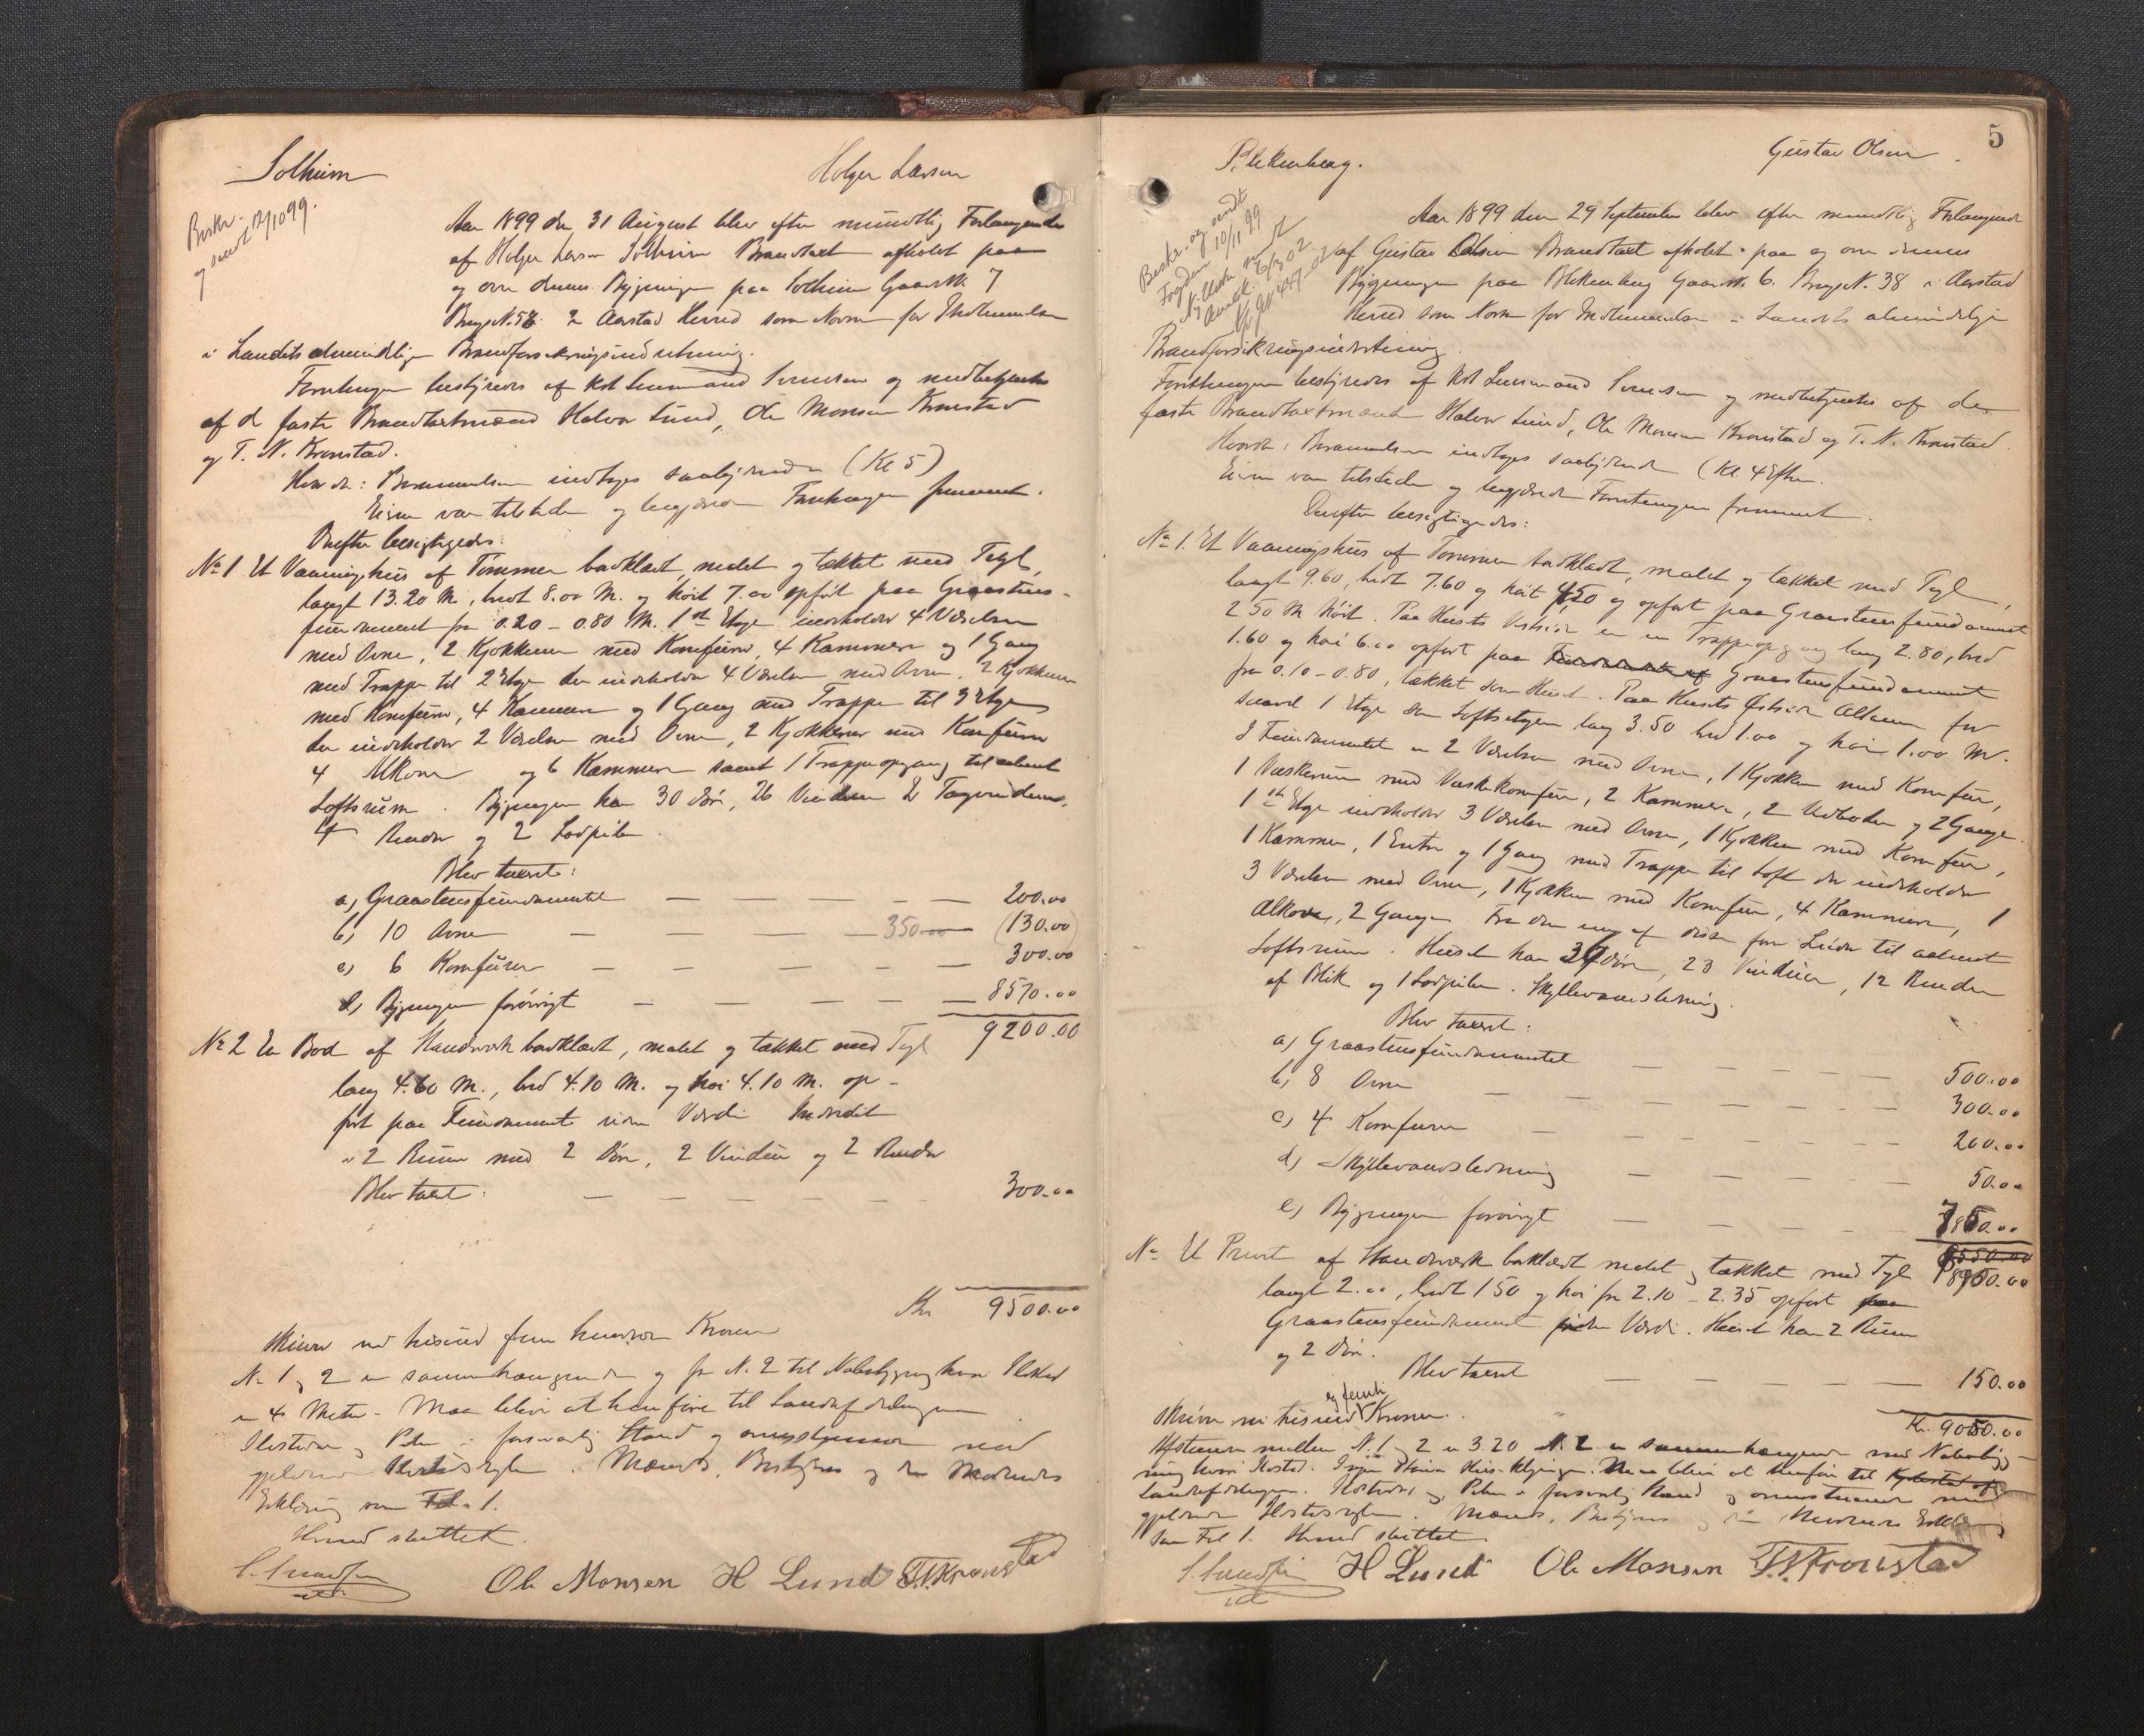 Solheim
Holger Larsen
Beskr.
og sendt 12/10 99.
Aar 1899 den 31 August blev efter mundtlig Forlangende
af Holger Larsen Solheim Brandtaxt afholdt paa
og over dennes Bygninger paa Solheim Gaards N. 7
Brugs N. 58 i Aarstad Herred som Norm for Indlemmelse
i Landets almindelige Brandforsikringsindretning.
Forretningen bestyredes af Kst Lensmand og medbetjentes
af de faste Brandtaxtmænd Halvor Lund, Ole Monsen Kronstad
og T. N. Kronstad.
Hvorda: Bemmelsen indtoges saalydende (Kl 5)
Eieren var tilstede og begjærede Forretningen fremmet.
Derefter besigtigedes:
No 1 Et Vaaningshus af Tømmer bordklædt, malet og tækket med Tegl,
langt 13.20 M, bredt 8.00 M. og høit 7.00 opført paa Graastens-
fundament fra 0.20 - 0.80 M. 1ste Etage indeholder 4 Værelser
med Ovne, 2 Kjøkkener med Komfurer, 4 Kammere og 1 Gang
med Trappe til 2 Etage der indeholder 4 Værelser med Ovne, 2 Kjøkkener
med Komfurer, 4 Kammere og 1 Gang med Trappe til 3 Etage
der indeholder 2 Værelser med Ovne, 2 Kjøkkener med Komfurer
4 Alkover og 6 Kammere samt 1 Trappeopgang til aabent
Loftsrum. Bygningen har 30 Døre, 26 Vinduer 2 Tagvinduer,
4 Render og 2 Lodpiber.
Blev taxeret:
a) Graastensfundamentet 200.00
b) 10 Ovne 350.00 (130.00)
c) 6 Komfurer 300.00
d) Bygningen forøvrigt 8570.00
9200.00
No 2 En Bod af Standværk bordklædt, malet og tækket med Tegl
lang 4.60 M., bred 4.10 M. og høi 4.10 M. op-
ført paa Fundament uden Værdi. Inddelt
i 2 Rum med 2 Døre, 2 Vinduer og 2 Render
Blev taxeret. 300.00
Kr 9500.00
skriver ni tusind fem hundrede Kroner
No 1 og 2 er sammenhængende og fra N. 2 til Nabobygning hvor Ildsted
er 4 Meter. Maa blive at henføre til Landafdelingen
Ildsteder og Piber i forsvarlig Stand og overstemmer med
gjeldende Ildstedsregler. Mænds, Bestyrers og de Mødendes
Erklæring som Fol. 1.
Hermed sluttet.
Ole Monsen H Lund T.N.Kronstad
5
Blekenberg.
Gustav Olsen
Beskr. og sendt
Fogden 10/11 99
6/3 02
447-02
Aar 1899 den 29 September blev efter mundtlig Forlangende
af Gustav Olsen Brandtaxt afholdt paa og over dennes
Bygninger paa Blekenberg Gaards N. 6. Brugs N. 38 i Aarstad
Herred som Norm for Indlemmelse i Landets almindelige
Brandforsikringsindretning.
Forretningen bestyredes af Kst Lensmand og medbetjentes af de
faste Brandtaxtmænd Halvor Lund, Ole Monsen Kronstad og T. N. Kronstad.
Hvorda: Bemmelsen indtoges saalydende (Kl 4 Efterm.
Eieren var tilstede og begjærede Forretningen fremmet.
Derefter besigtigedes:
No 1. Et Vaaningshus af Tømmer bordklædt, malet og tækket med Tegl,
langt 9.60, bredt 7.60 og høit 4.50 og opført paa Graastensfundament
2.50 M høit. Paa Husets Vestside er en Trappeopgang lang 2.80, bred
1.60 og høi 6.00 opført paa Graastensfundament
fra 0.10 - 0.80, tækket som Huset. Paa Husets Østside Altaner for
saavel 1 Etage som Loftsetagen lang 3.50 bred 1.00 og høi 1.00 M.
I Fundamentet er 2 Værelser med Ovne, 1 Kjøkken med Komfur,
1 Vaskerum med Vaskekomfur, 2 Kammere, 2 Vedboder og 2 Gange.
1ste Etage indeholder 3 Værelser med Ovne, 1 Kjøkken med Komfur,
1 Kammer, 1 Entre og 1 Gang med Trappe til Loft der indeholder
3 Værelser med Ovne, 1 Kjøkken med Komfur, 4 Kammere, 1
Alkove, 2 Gange. Fra den ene af disse fører Luge til aabent
Loftsrum. Huset har 39 Døre, 23 Vinduer, 12 Render
af Blik og 1 Lodpibe. Skyllevandsledning.
Blev taxeret:
a) Graastensfundamentet 500.00
b) 8 Ovne 300.00
c) 4 Komfurer 200.00
d) Skyllevandsledning 50.00
e) Bygningen forøvrigt 7850.00
8900.00
No Et Privet af Standværk bordklædt malet og tækket med Tegl
langt 2.00, bredt 1.50 og høi fra 2.10 - 2.35 opført paa
Graastensfundament uden Værdi. Huset har 2 Rum
og 2 Døre.
Blev taxeret 150.00
Kr. 9050.00
skriver ni tusind og femti Kroner.
Afstanden mellem N. 1 og 2 er 3.20 N. 2 er sammenhængende med Nabobyg-
ning hvori Ildsted. Ingen Maa blive at henføre til
Landafdelingen. Ildsteder og Piber i forsvarlig Stand og overstemmer med
gjeldende Ildstedsregler. Mænds, Bestyrers og de Mødendes Erklæring
som Fol 1. Hermed sluttet
H Lund Ole Monsen T.N.Kronstad